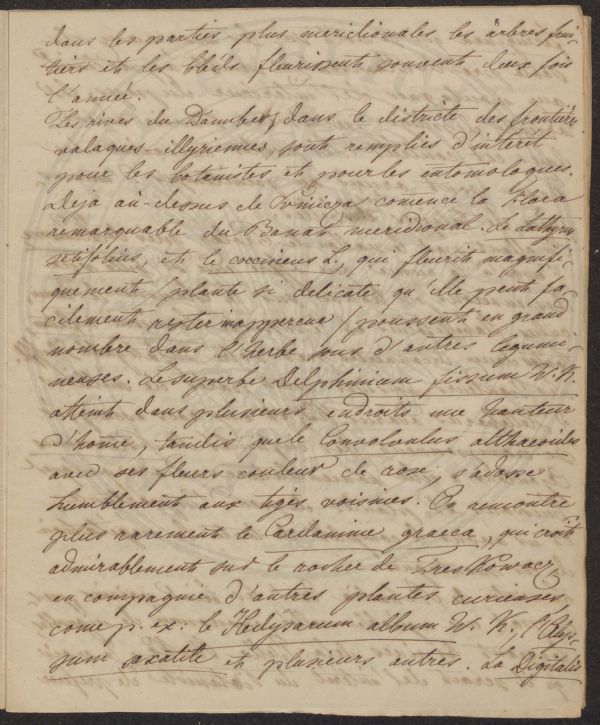 dans les parties plus meridionales les arbres frui-
tiers et les bléds fleurissent souvent deux fois
l'année.
Les rives du Danube, dans le districte des frontièr
valaques-illyriennes, sont remplies d'intérêt
pour les botanistes et pour les entomologues.
Deja au-dessus de comence la Flora
remarquable du Banat meridional. Le Lathyrus
setifolius, et le coccineus L., qui fleurit magnifi-
quement / plante si delicate qu'elle peut fa-
cilement rester inappercue / poussent en grand
nombre dans l'herbe sous d'autres legumi-
neuses. Le superbe Delphinium fissum W. K.
atteint dans plusieurs endroits une hauteur
d'home, tandis que le Convolvulus althaeoides
avec ses fleurs couleur de rose, s'adosse
humblement aux tiges voisines. On rencontre
plus rarement le Cardamine graeca, qui croît
admirablement sur le rocher de Treskowacz
en compagnie d'autres plantes curieuses
come p. ex: le Hedysarum album W. K., l'Alys-
sum saxatile et plusieurs autres. La Digitalis